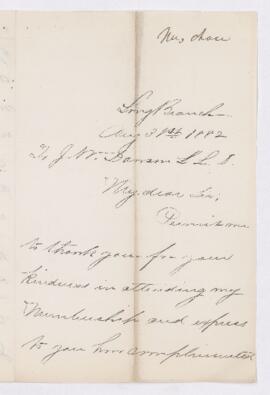 Long Branch
Aug 31st 1882
To J. W. Dawson L L D
My dear Sir;
Permit me
to thank you for your
kindness in attending my
and express
to you how complimented